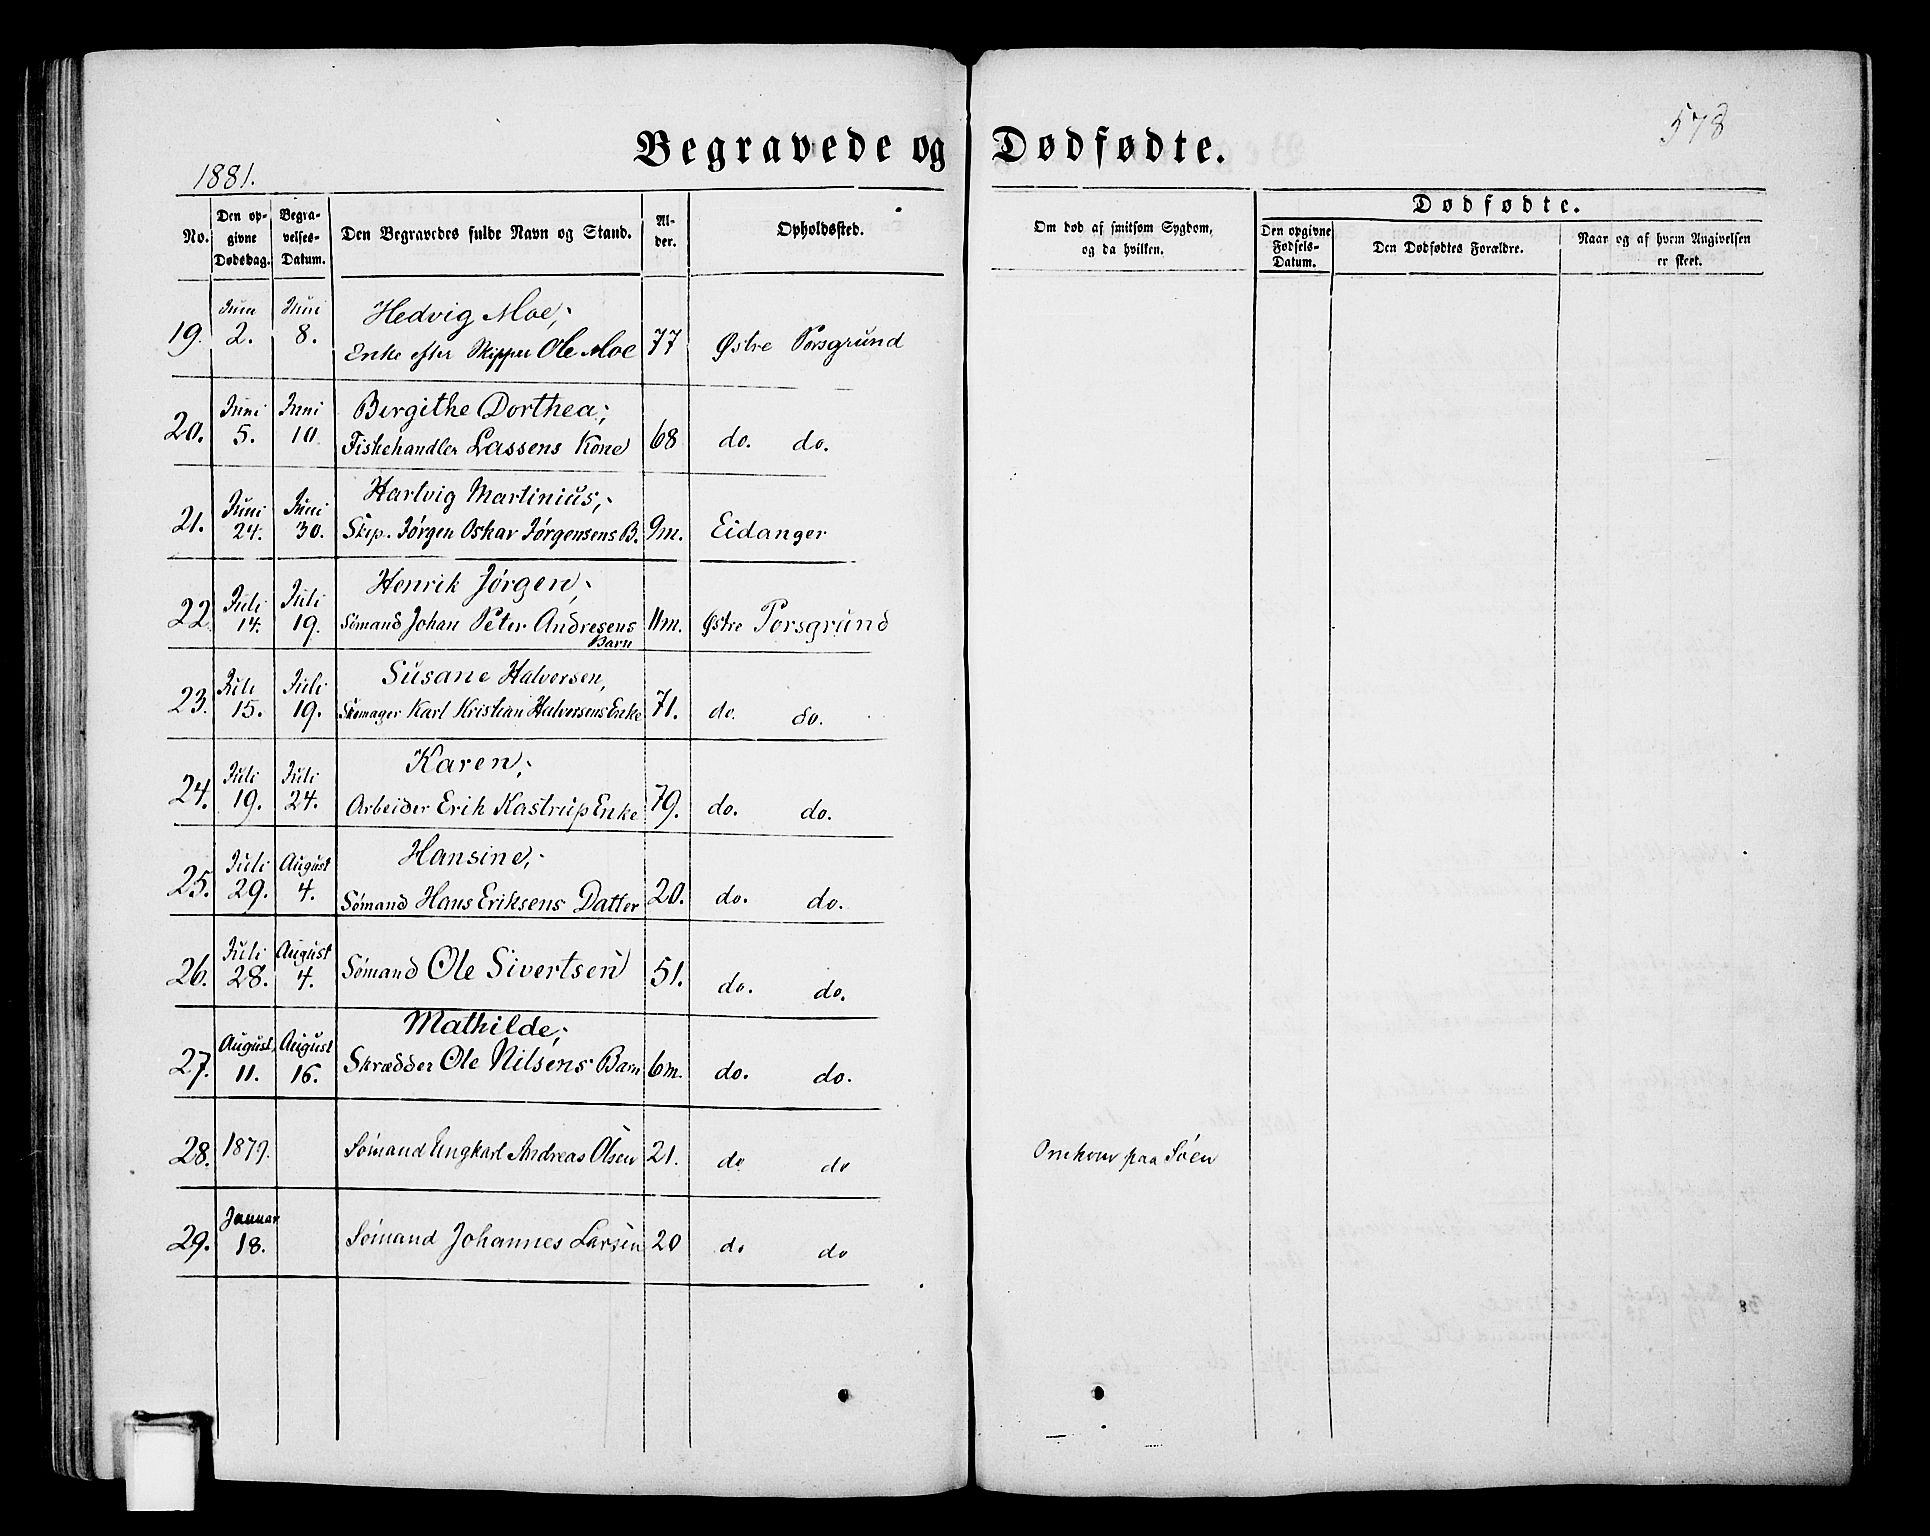 578
Begravede og Dødfødte.
1881.
No.
Den op-
givne
Dødsdag.
Begra-
velses-
Datum.
Den Begravedes fulde Navn og Stand.
Al-
der.
Opholdssted.
Om død af smitsom Sygdom,
og da hvilken.
Dødfødte.
Den opgivne
Fødsels-
Datum.
Den Dødfødtes Forældre.
Naar og af hvem Angivelsen
er skeet.
19. Juni 2. Juni 8. Hedvig Moe,
Enke efter Skipper Ole Moe 77 Østre Porsgrund
20. Juni 5. Juni 10. Birgithe Dorthea,
Fiskehandler Lassens Kone 68 do. do.
21. Juni 24. Juni 30. Hartvig Martinius,
Skip. Jørgen Oskar Jørgensens B. 9m. Eidanger
22 Juli 14. Juli 19. Henrik Jørgen,
Sømand Johan Peter Andresens 11m. Østre Porsgrund
Barn
23. Juli 15. Juli 19. Susane Halvorsen,
Skomager Karl Kristian Halvorsens Enke 71. do. do.
24. Juli 19. Juli 24. Karen,
Arbeider Erik Kastrup Enke 79. do. do.
25. Juli 29. August 4. Hansine,
Sømand Hans Eriksens Datter 20. do. do.
26. Juli 28. August 4. Sømand Ole Sivertsen 51. do. do.
27. August 11. August 16. Mathilde,
Skrædder Ole Nilsens Barn 6m. do. do.
28. 1879. Sømand Ungkarl Andreas Olsen 21. do do Omkom paa Søen
29. Januar 18. Sømand Johannes Larsen 20 do do